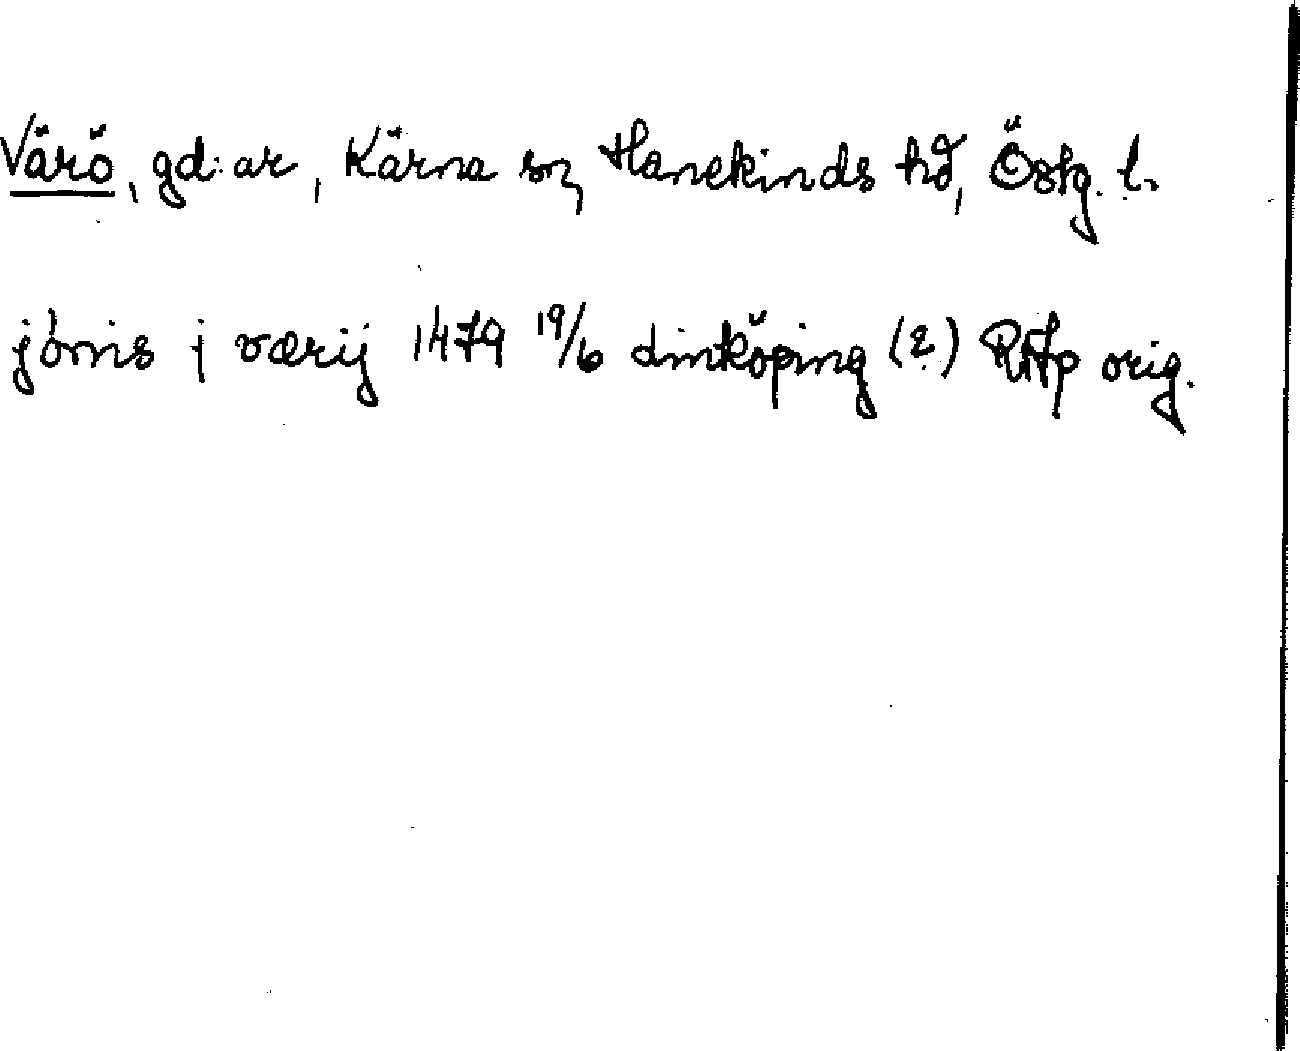 Värö, gd:ar, Kärna sn, Hanekinds hd, Östg. l.
jönis j værij 1479 19/6 Linköping (?) RAp orig.